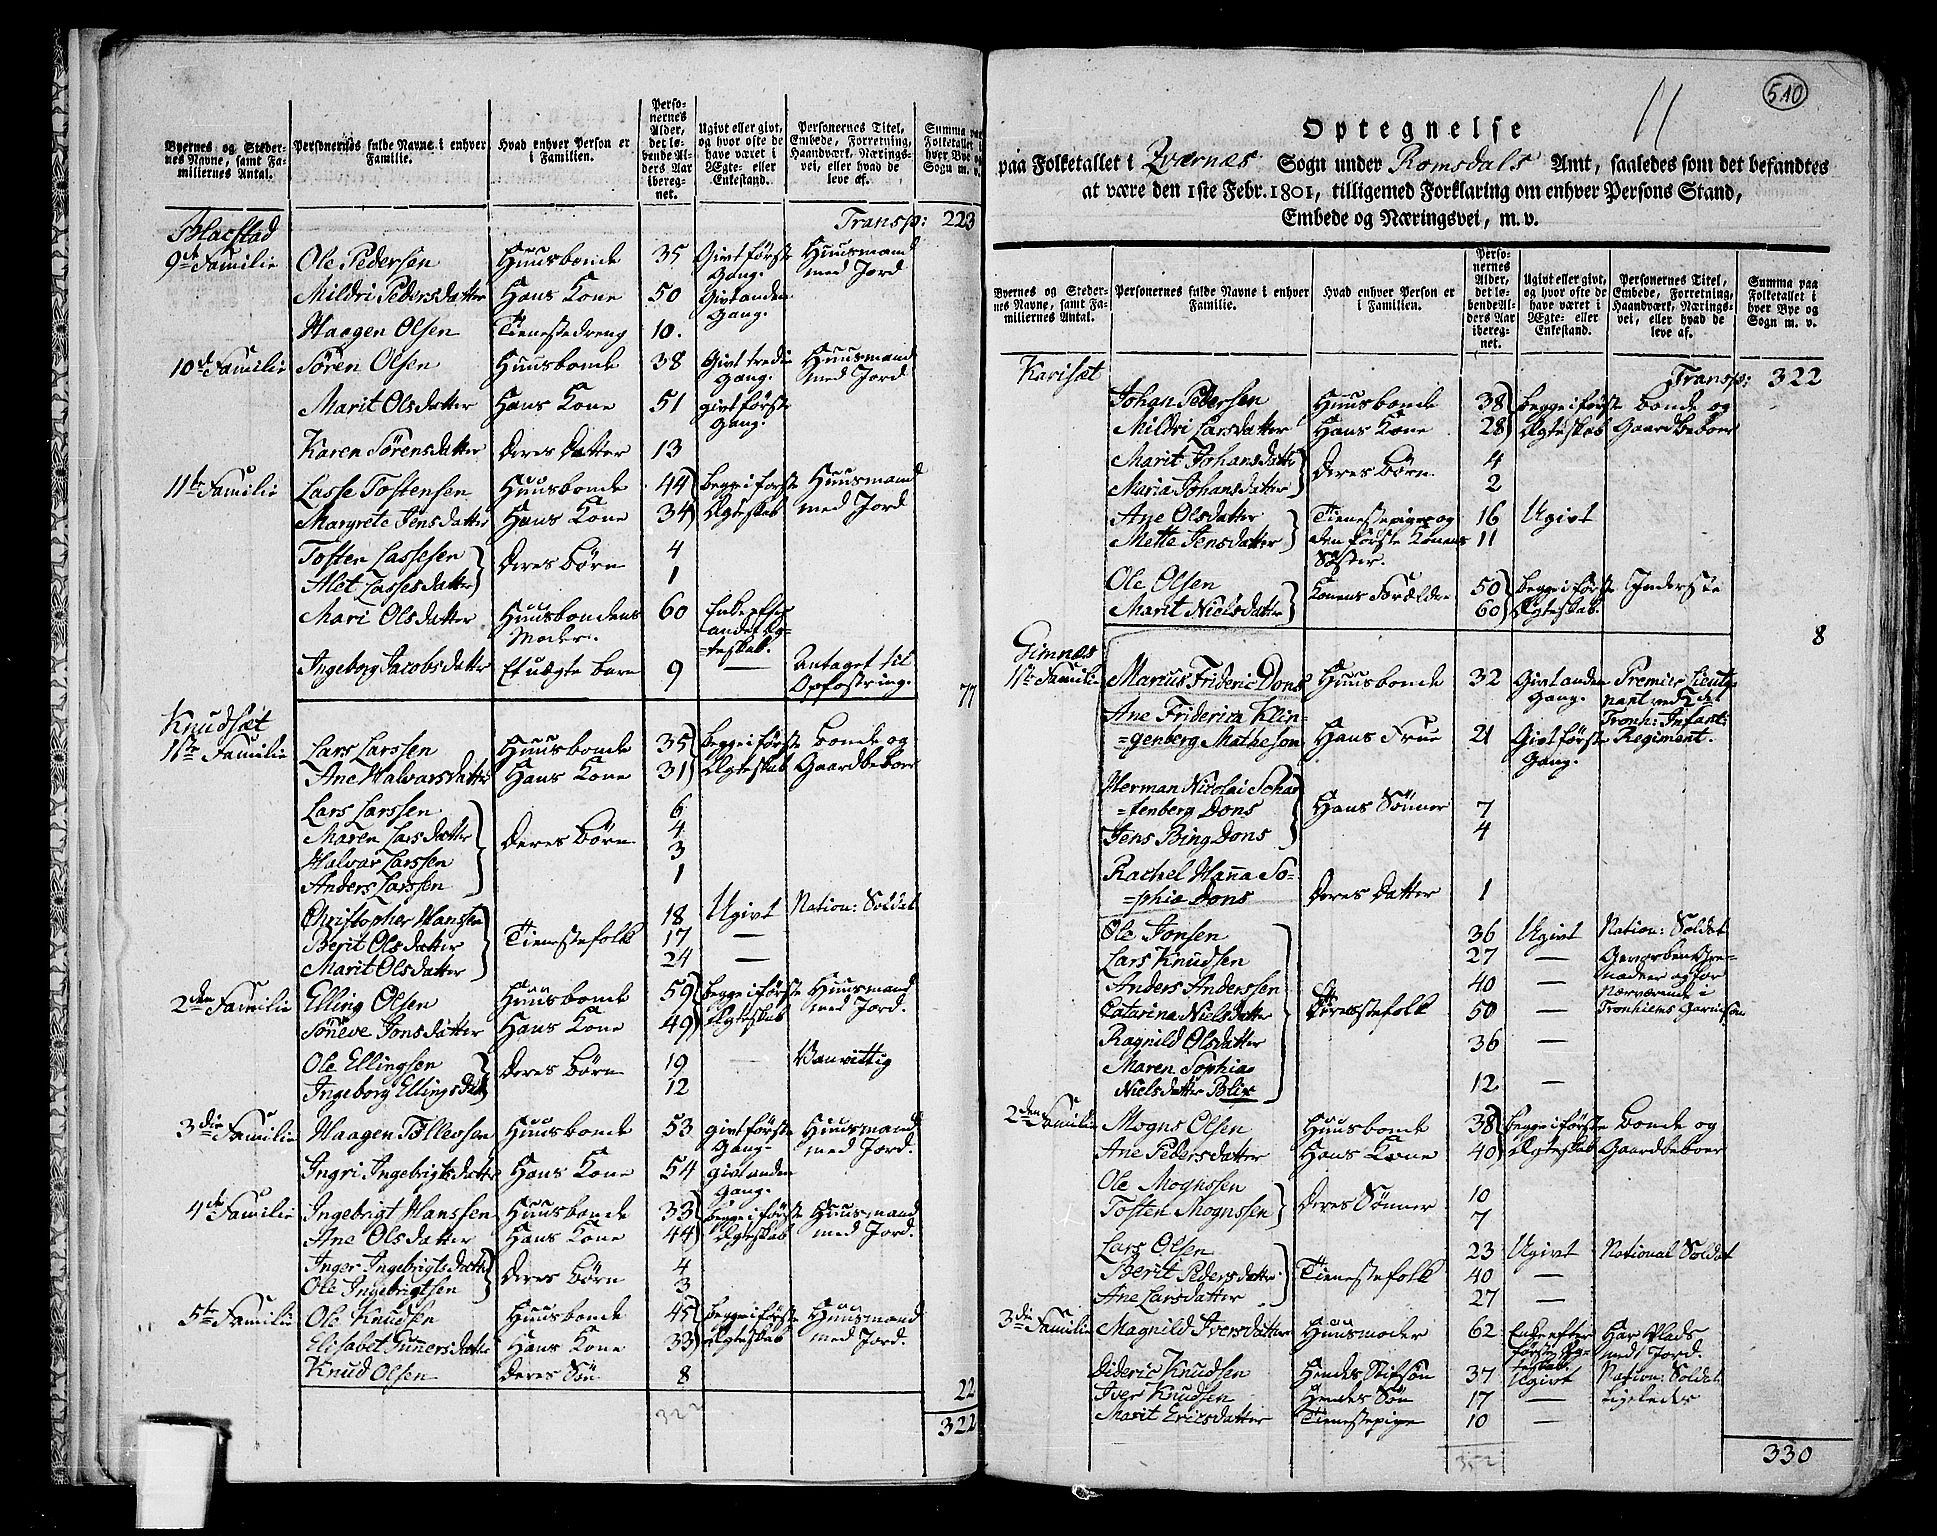 Byernes og Steder-
nes Navne, samt Fa-
miliernes Antal.
Personernes fulde Navne i enhver
Familie.
Hvad enhver Person er
i Familien.
Perso-
nernes
Alder,
det lø-
bende Al-
ders Aar
iberegnet.
Ugivt eller givt,
og hvor ofte de
have været i
Ægte- eller
Enkestand.
Personernes Titel,
Embede, Forretning,
Haandværk, Nærings-
vei, eller hvad de
leve af.
Summa paa
Folketallet i
hver Bye og
Sogn m. v.
Transp: 223
9de Familie Ole Pedersen Huusbonde 35 Givt første Gang. Huusmand med Jord
Mildri Pedersdatter Hans Kone 50 Givt anden Gang.
Haagen Olsen Tienestedreng 10.
10de Familie Sören Olsen Huusbonde 38 Givt tredie Gang. Huusmand med Jord
Marit Olsdatter Hans Kone 51 givt første Gang.
Karen Sörensdatter Deres Datter 13
11te Familie Lasse Tostensen Huusbonde 44 Begge i første Huusmand
Margrete Jensdatter Hans Kone 34 Ægteskab med Jord
Tosten Lassesen Deres Börn 4
Alet Lassesdatter 1
Mari Olsdatter Huusbondens Moder. 60 Enke efter andet Ægteskab.
Ingeborg Jacobsdatter Et uægte barn 9 — Antaget til Opfostring.
77
Knudsæt
1ste Familie Lars Larssen Huusbonde 35 Begge i første Bonde og
Ane Halvarsdatter Hans Kone 31 Ægteskab Gaardbeboer
Lars Larssen 6
Maren Larsdatter Deres Börn 4
Halvar Larssen 3
Anders Larssen 1
Christopher Hanssen 18 Ugivt Nation: Soldat
Berit Olsdatter Tienestefolk 17 —
Marit Olsdatter 24 —
2den Familie Elling Olsen Huusbonde 59 Begge i første Huusmand
Söneve Jonsdatter Hans Kone 49 Ægteskab med Jord.
Ole Ellingsen Deres Börn 19 — Vanvittig
Ingeborg Ellingsdatt 12
3die Familie Haagen Tollevsen Huusbonde 53 givt første Gang. Huusmand med Jord.
Ingri Ingebrigtsdatter Hans Kone 54 givt anden Gang.
4de Familie Ingebrigt Hanssen Huusbonde 33 Begge i første Huusmand
Ane Olsdatter Hans Kone 44 Ægteskab med Jord.
Inger Ingebrigtsdatter Deres Börn 4
Ole Ingebrigtsen 3
5te Familie Ole Knudsen Huusbonde 45 Begge i første Huusmand
Elisabet Gunnersdatter Hans Kone 33 Ægteskab med Jord.
Knud Olsen Deres Sön 8
22
322
322
510
11
Optegnelse
paa Folketallet i Qværnæs Sogn under Romsdals Amt, saaledes som det befandtes
at være den 1ste Febr. 1801, tilligemed Forklaring om enhver Persons Stand,
Embede og Næringsvei, m. v.
Byernes og Steder-
nes Navne, samt Fa-
miliernes Antal.
Personernes fulde Navne i enhver
Familie.
Hvad enhver Person er
i Familien.
Perso-
nernes
Alder,
det lø-
bende Al-
ders Aar
ibereg-
net.
Ugivt eller givt,
og hvor ofte de
have været i
Ægte- eller
Enkestand.
Personernes Titel,
Embede, Forretning,
Haandværk, Nærings-
vei, eller hvad de
leve af.
Summa paa
Folketallet i
hver Bye og
Sogn m. v.
Karisæt Transp: 322
Johan Pedersen Huusbonde 38 Begge i første Bonde og
Mildri Larsdatter Hans Kone 28 Ægteskab Gaardbeboer
Marit Johansdatter Deres Börn 4
Maria Johansdatter 2
Ane Olsdatter Tienestepiger og 16 Ugivt
Mette Jensdatter den første Konens Söster. 11
Ole Olsen Konens Forældre 50 Begge i første Inderste
Marit Nielsdatter 60 Ægteskab.
8
Gimnæs
1ste Familie Marcus Frideric Dons Huusbonde 32 Givt anden Gang. Premier Lieutenant ved 2det Tronh: Infant: Regiment.
Ane Friderica Klin-
=genberg Matheson Hans Frue 21 Givt første Gang.
Herman Nicolai Schar
=tenberg Dons Hans Sönner 7
Jens Bing Dons 4
Rachel Hanna So-
=phia Dons Deres Datter 1
Ole Jonsen 36 Ugivt Nation: Soldat
Lars Knudsen 27 — Gevorben Gre-
Anders Anderssen 40 — nadeer og for
Catarina Nielsdatter Tienestefolk 50 — Nærværende i Tronhiems Garnison
Ragnild Olsdatter 36 —
Maren Sophia
Nielsdatter Blix 12 —
2den Familie Mogns Olsen Huusbonde 38 Begge i første Bonde og
Ane Pedersdatter Hans Kone 40 Ægteskab Gaardbeboer
Ole Mognssen Deres Sönner 10
Tosten Mognssen 7
Lars Olsen 23 Ugivt National Soldat
Berit Pedersdatter Tienestefolk 40 —
Ane Larsdatter 27 —
3die Familie Magnild Iversdatter Huusmoder 62 Enke efter første Ægteskab. Har Plads med Jord.
Dideric Knudsen Hendes Stifsön 37 Ugivt Nation: Soldat
Iver Knudsen Hendes Sön 17 — Ligeledes
Marit Ericsdatter Tienestepige 10 —
352
330